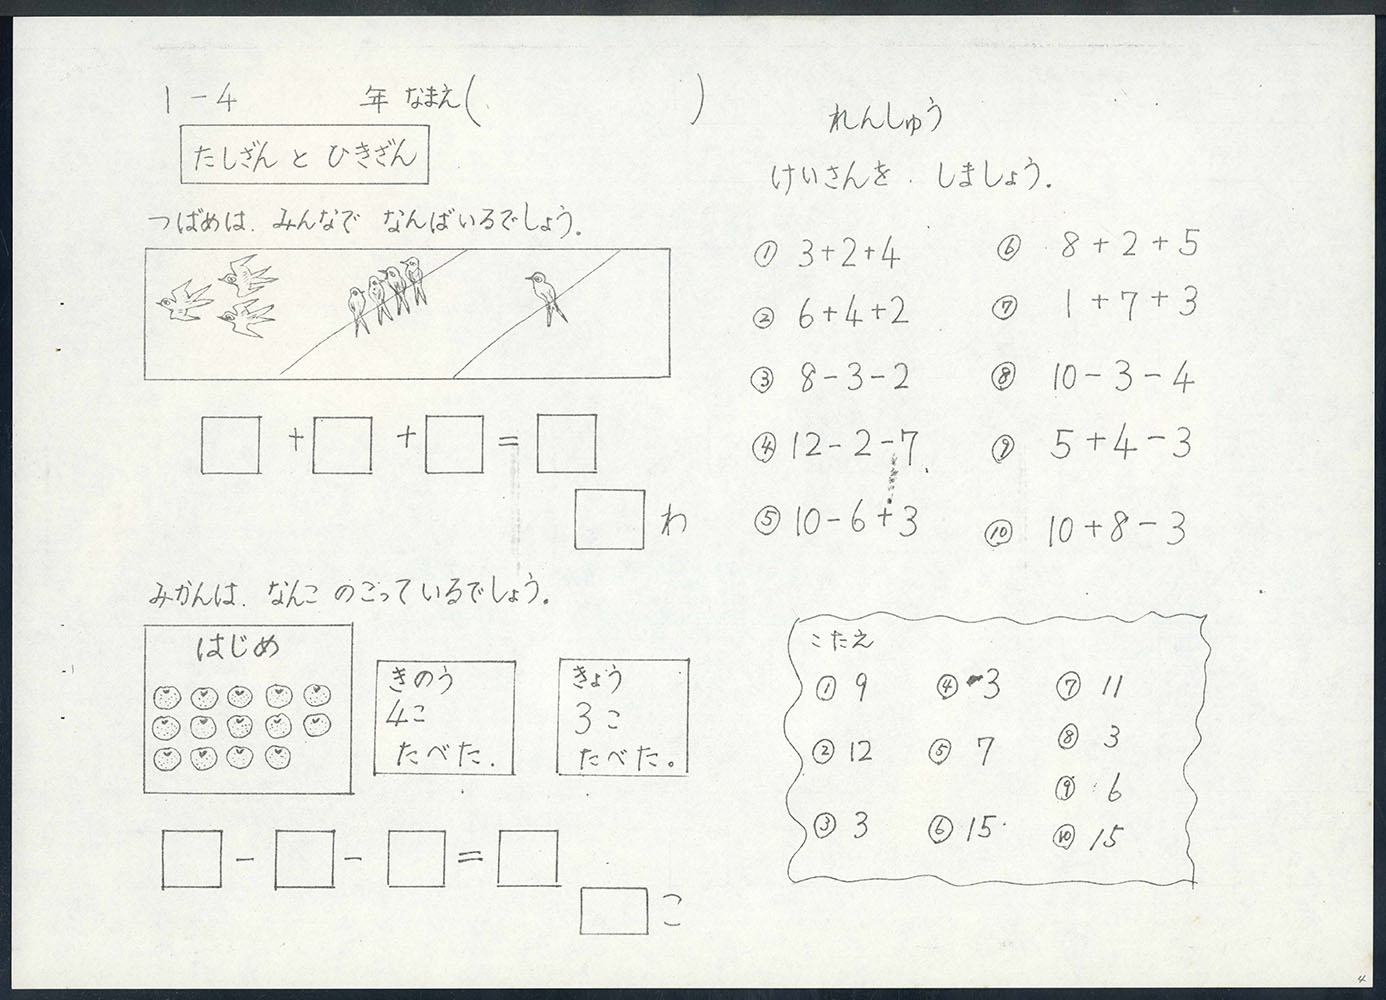 1-4 年 なまえ( )
たしざん と ひきざん
つばめは、みんなで なんばいるでしょう。
□ + □ + □ = □
□ わ
みかんは、なんこ のこっているでしょう。
はじめ
きのう
4こ
たべた。
きょう
3こ
たべた。
□ - □ - □ = □
□ こ
れんしゅう
けいさんを しましょう。
① 3+2+4
② 6+4+2
③ 8-3-2
④ 12-2-7
⑤ 10-6+3
⑥ 8+2+5
⑦ 1+7+3
⑧ 10-3-4
⑨ 5+4-3
⑩ 10+8-3
こたえ
① 9
② 12
③ 3
④ 3
⑤ 7
⑥ 15
⑦ 11
⑧ 3
⑨ 6
⑩ 15
4